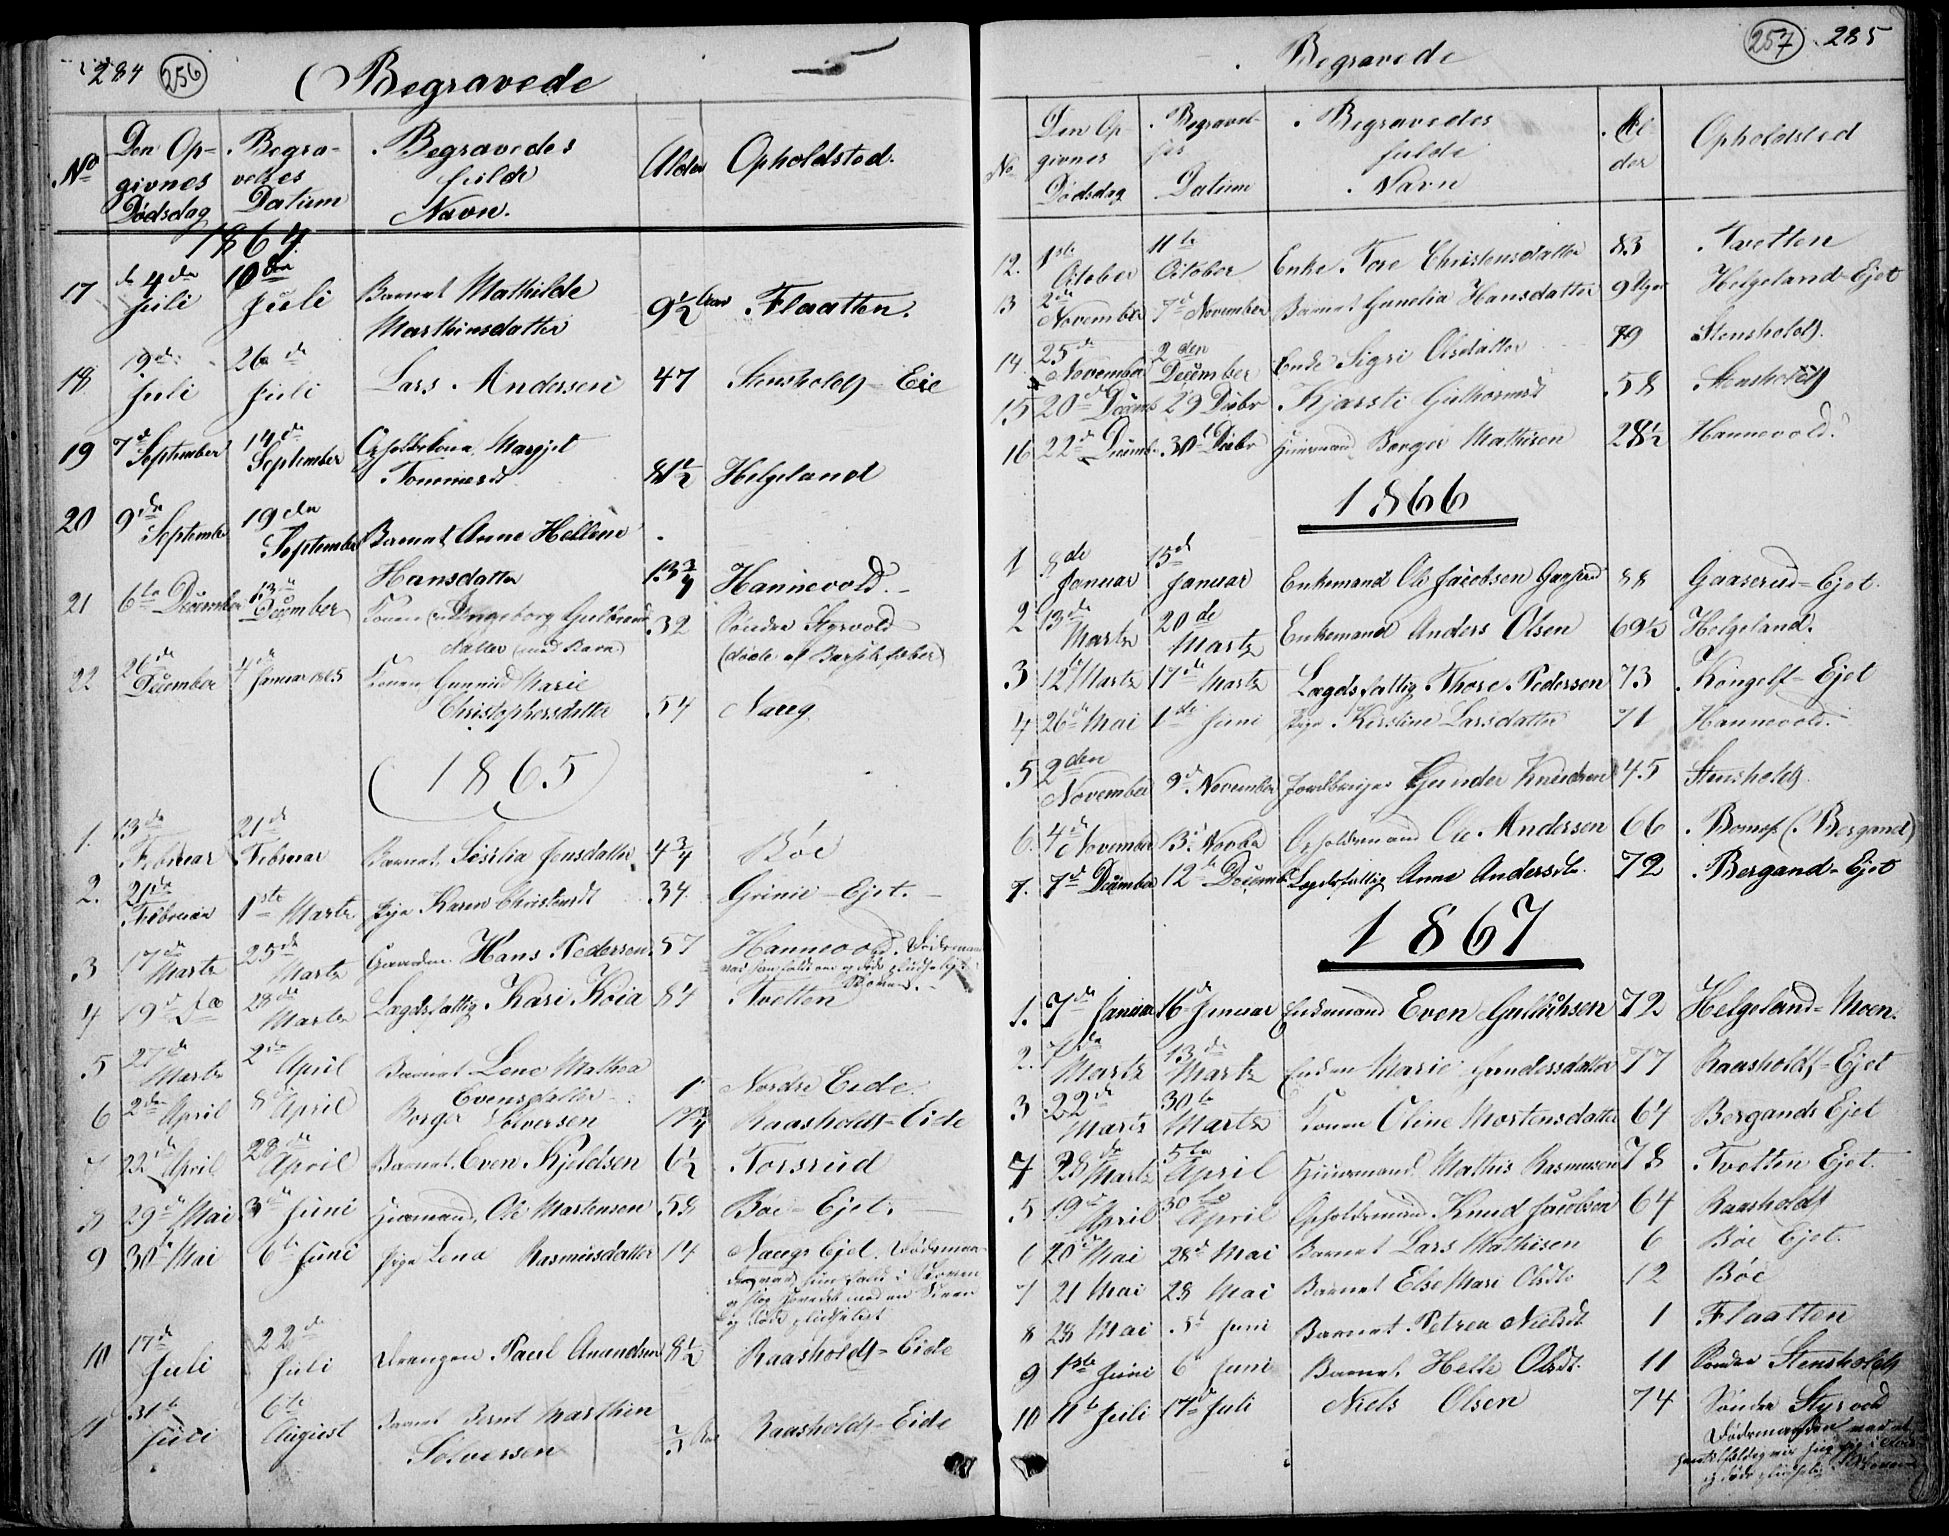 284 256 Begravede
No Den Opgivnes Dödsdag Begravelses Datum Begravedes fulde Navn. Alder Opholdsted.
1864
17 d. 4de Juli 10de Juli Barnet Mathilde
Marthinsdatter 9½ Flaatten.
18 19de Juli 26de Juli Lars Andersen 47 Stensholdt-Eie
19 7de September 14de September Margjet
Tommesd. 81½ Helgeland
20 9de September 19de September Barnet Anne Hellene
Hansdatter 13¾ Hannevold.
21 6te December 13de December Konen Ingeborg Gulbrands
datter (med Barn) 32 Söndre Styrvold
(döde af Barselsfeber)
22 26de December 4de Januar 1865 Konen Gunnild Marie
Christophersdatter 54 Nareg
(1865)
1. 13de Februar 21de Februar Barnet Sisilia Jensdatter 4¾ Böe
2. 21de Februar 1ste Martz Pige Karen Christensdt 34 Grinie-Ejet.
3 17de Martz 25de Martz Hans Pedersen 57 Hannevold.
4 19de 28de Martz Lægdsfattig Kari Koia 84 Tvetten
5 27de Martz 2de April Barnet Lene Mathea
Evensdatter 1 Nordre Eide.
6 2den April 8de April Borger Solversen Raasholdt-Eide
7 22de April 28de April Barnet Even Kjeldsen 6½ Torsrud
8 29de Mai 3de Juni Huusmand Ole Martensen 58 Böe-Ejet.
9 30de Mai 6te Juni Pige Lena Rasmusdatter 14 Naregs Ejet. Dödsmaa-
den var hun faldt i
og slog Hovedet mod en Steen
og döde pludseligt
10 17de Juli 22de Juli Drengen Paul Amundsen 8½ Raasholdt-Eide
11 31te Juli 6te August Barnet Bernt Marthin
Solversen Raasholdt-Eide
Begravede 257 285
No Den Opgivnes Dödsdag Begravelses Datum Begravedes fulde Navn Alder Opholdsted
12. 1ste October 11te October Enke Tore Christensdatter 83 Tvetten
13 2de November 7de November Barnet Gunelia Hansdatter 9 Helgeland-Ejet
14. 25de November 2den December Enke Sigri Olsdatter 79 Stensholdt.
15 20de Decemb. 29 Decbr Kjersti Guthormsd 58 Stensholdt
16 22de Decemb. 30te Decbr Huusmand Borger Mathisen 28½ Hannevold.
1866
1 8de Januar 15de Januar Enkemand Ole Jacobsen 88 Gaaserud-Ejet.
2 13de Martz 20de Martz Enkemand Anders Olsen 69½ Helgeland.
3 12te Martz 17de Martz Lægdsfattig Thore Pedersen 73 Kongelf-Ejet
4 26de Mai 1de Juni Pige Kirstine Larsdatter 71 Hannevold.
5 2den November 9de November Gunder Knudsen 45 Stensholdt.
6. 4de November 13de Novbr Ole Andersen 66 (Bergand)
7. 7de December 12te Decemb. Lægdsfattig Anne Andersdtr. 72 Bergand-Ejet
1867
1. 7de Januar 16de Januar Enkemand Even Gulliksen 72 Helgeland-Moen.
2. 7de Martz 13de Martz Enken Marie Gundersdatter 77 Raasholdt-Ejet
3 22de Martz 30te Martz Konen Oline Mortensdatter 64 Bergands Ejet
4 28de Martz 5te April Huusmand Mathis Rasmusen 78 Tvetten Ejet.
5 19de April 30te April Knud Jacobsen 64 Raasholdt
6 20de Mai 28de Mai Barnet Lars Mathisen 6 Böe Ejet.
7 21 Mai 28 Mai Barnet Else Mari Olsdt. 12 Böe
8 28 Mai 5te Juni Barnet Petrea Nielsdt 1 Flaatten
9 1ste Juni 6te Juni Barnet Helle Olsdt. 11 Söndre Stensholdt
10 11te Juli 17de Juli Niels Olsen 74 Söndre Styrvold
Dödsmaaden var at
og döde pludselig